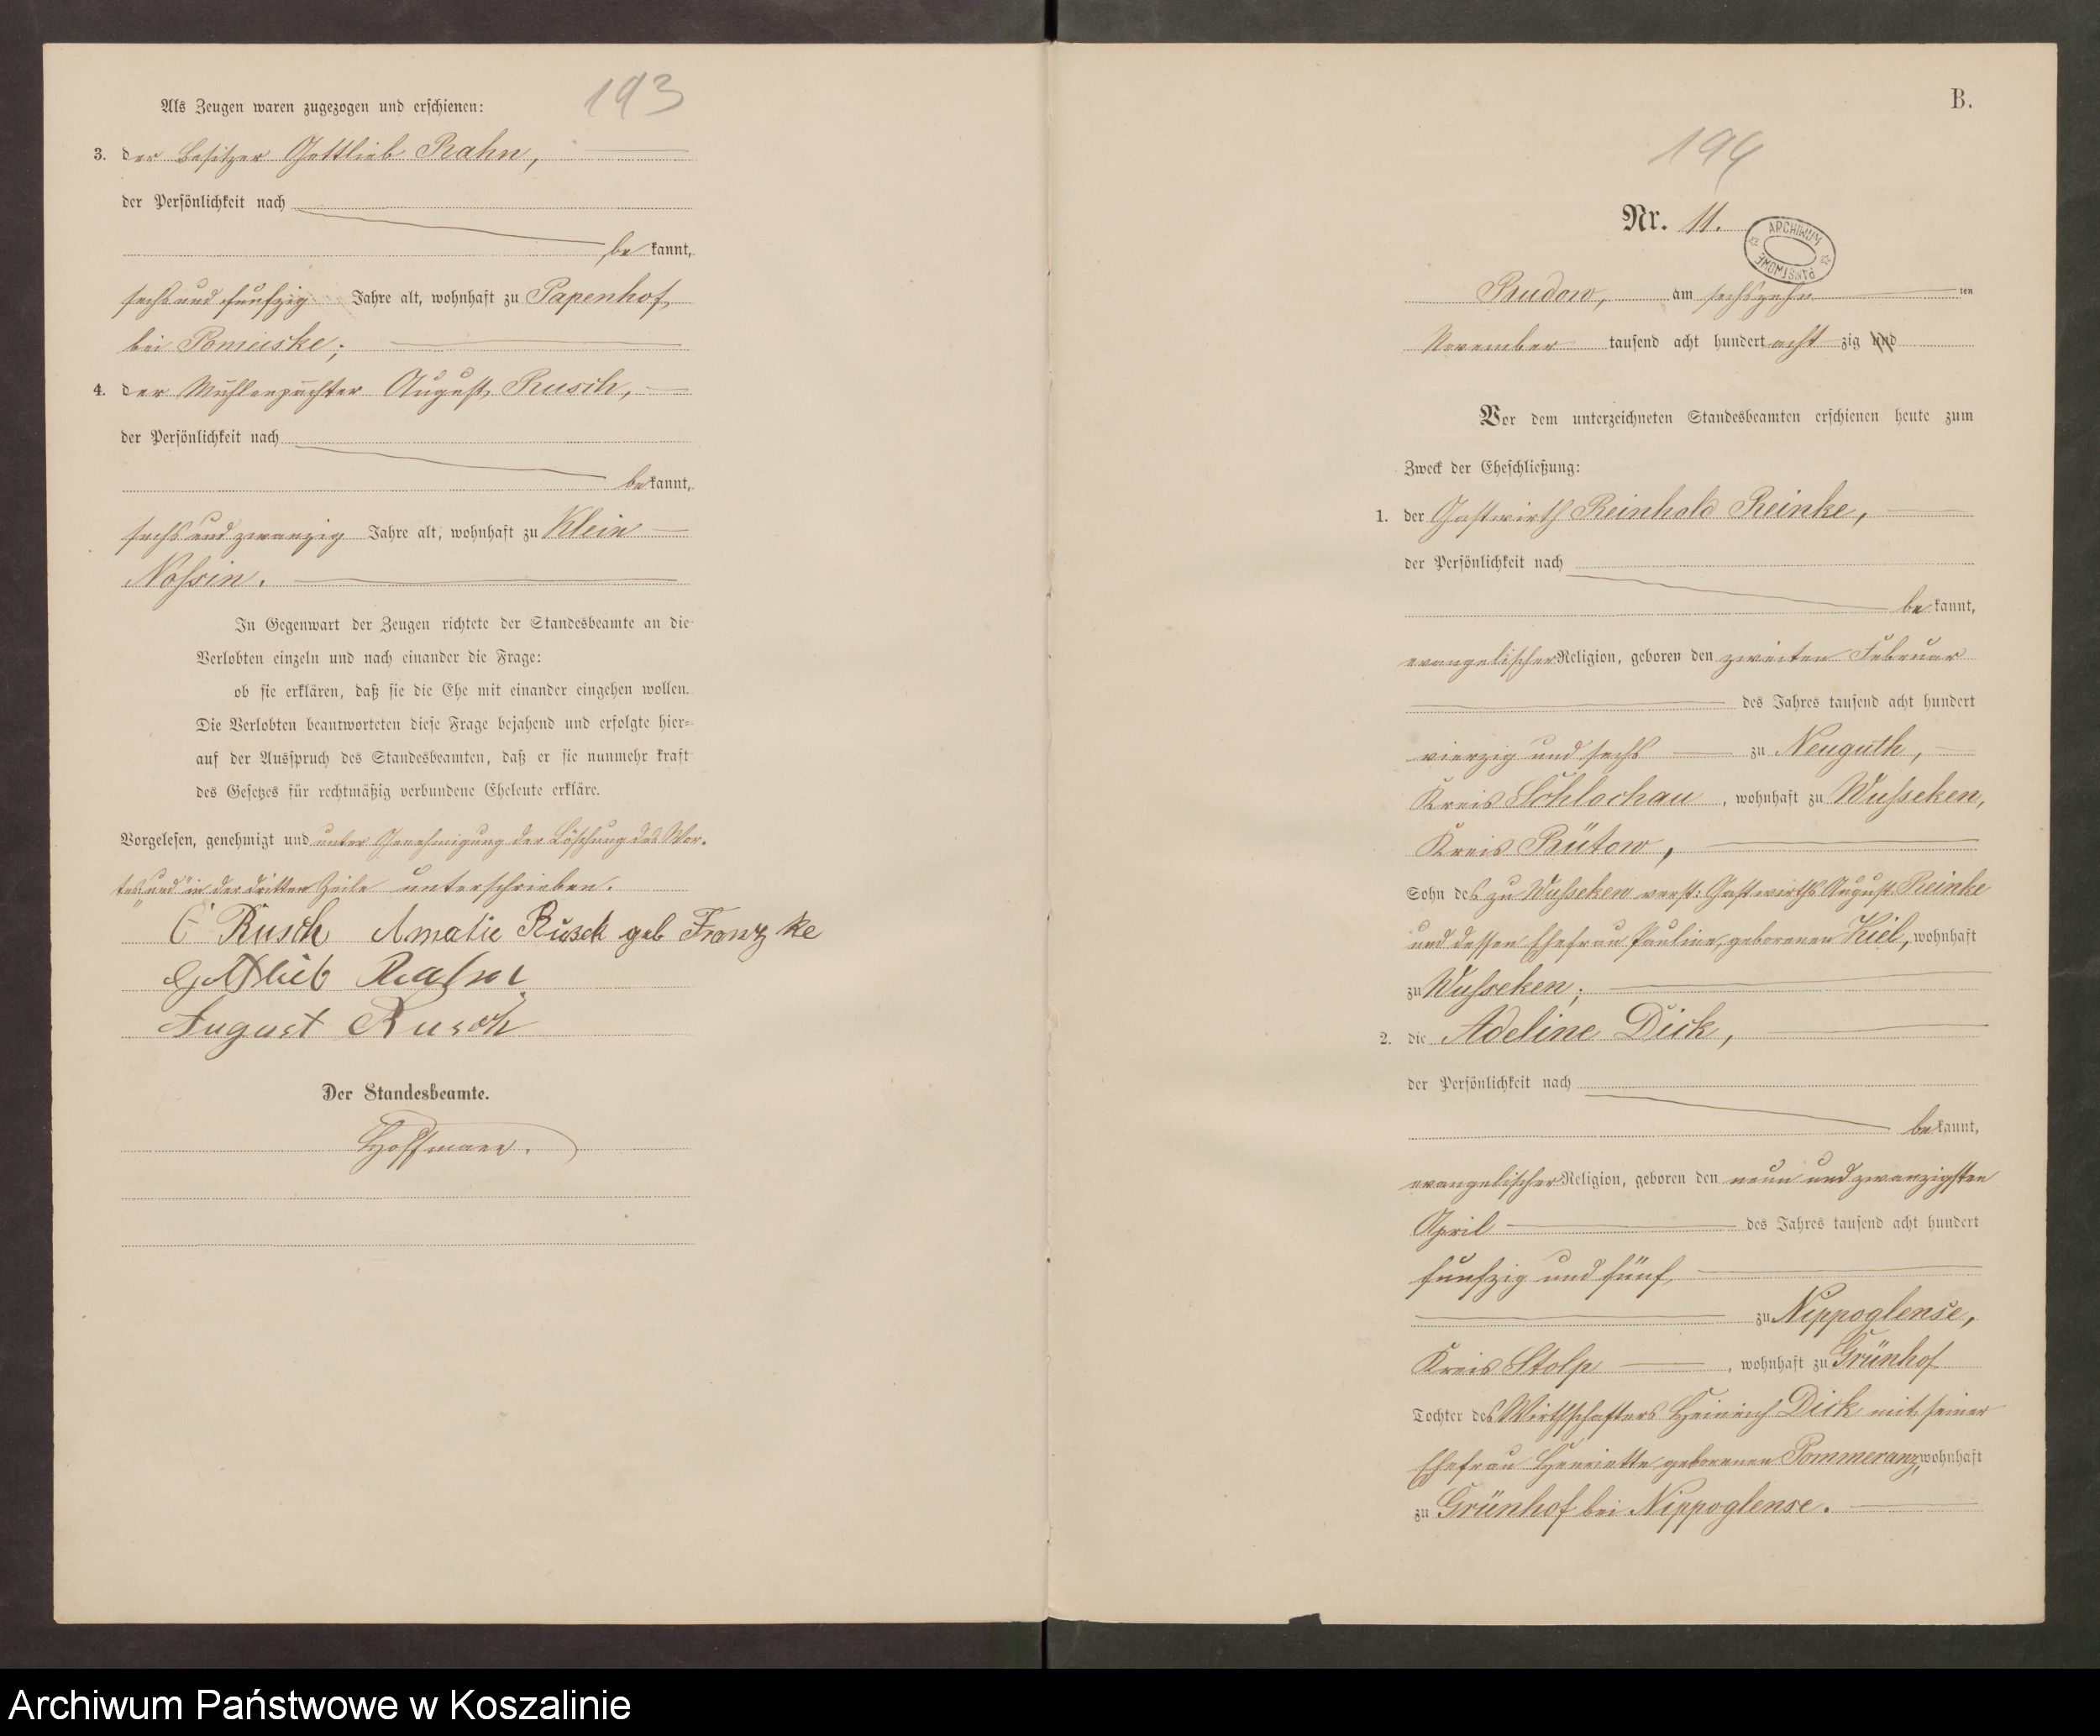 193
Als Zeugen waren zugezogen und erschienen:
3. der Besitzer Gottlieb Rahn,
der Persönlichkeit nach
be kannt,
sechs und funfzig Jahre alt, wohnhaft zu Papenhof,
bei Pomeiske;
4. der Mühlenpächter August Rusch,
der Persönlichkeit nach
be kannt,
sechs und zwanzig Jahre alt, wohnhaft zu Klein
Nossin.
In Gegenwart der Zeugen richtete der Standesbeamte an die
Verlobten einzeln und nach einander die Frage:
ob sie erklären, daß sie die Ehe mit einander eingehen wollen.
Die Verlobten beantworteten diese Frage bejahend und erfolgte hier-
auf der Ausspruch des Standesbeamten, daß er sie nunmehr kraft
des Gesetzes für rechtmäßig verbundene Eheleute erkläre.
Vorgelesen, genehmigt und unter Genehmigung der Löschung des Wor-
tes „und" in der dritten Zeile unterschrieben.
Rusch Amalie Rusch geb Franzke
Gottlieb Rahn
August Rusch
Der Standesbeamte.
Hoffmann.
B.
194
Nr. 11.
ARCHIWUM PAŃSTWOWE
Budow, am sechszehn ten
November tausend acht hundert acht zig und
Vor dem unterzeichneten Standesbeamten erschienen heute zum
Zweck der Eheschließung:
1. der Gastwirth Reinhold Reinke,
der Persönlichkeit nach
be kannt,
evangelischer Religion, geboren den zweiten Februar
des Jahres tausend acht hundert
vierzig und sechs zu Neuguth,
Kreis Schlochau, wohnhaft zu Wusseken,
Kreis Bütow,
Sohn des zu Wusseken verst: Gastwirths August Reinke
und dessen Ehefrau Pauline, geborenen Kiel, wohnhaft
zu Wusseken;
2. die Adeline Dick,
der Persönlichkeit nach
be kannt,
evangelischer Religion, geboren den neun und zwanzigsten
April des Jahres tausend acht hundert
funfzig und fünf
zu Nippoglense,
Kreis Stolp, wohnhaft zu Grünhof
Tochter des Wirthschafters Heinrich Dick mit seiner
Ehefrau Henriette, geborenen Pommeranz, wohnhaft
zu Grünhof bei Nippoglense.
Archiwum Państwowe w Koszalinie